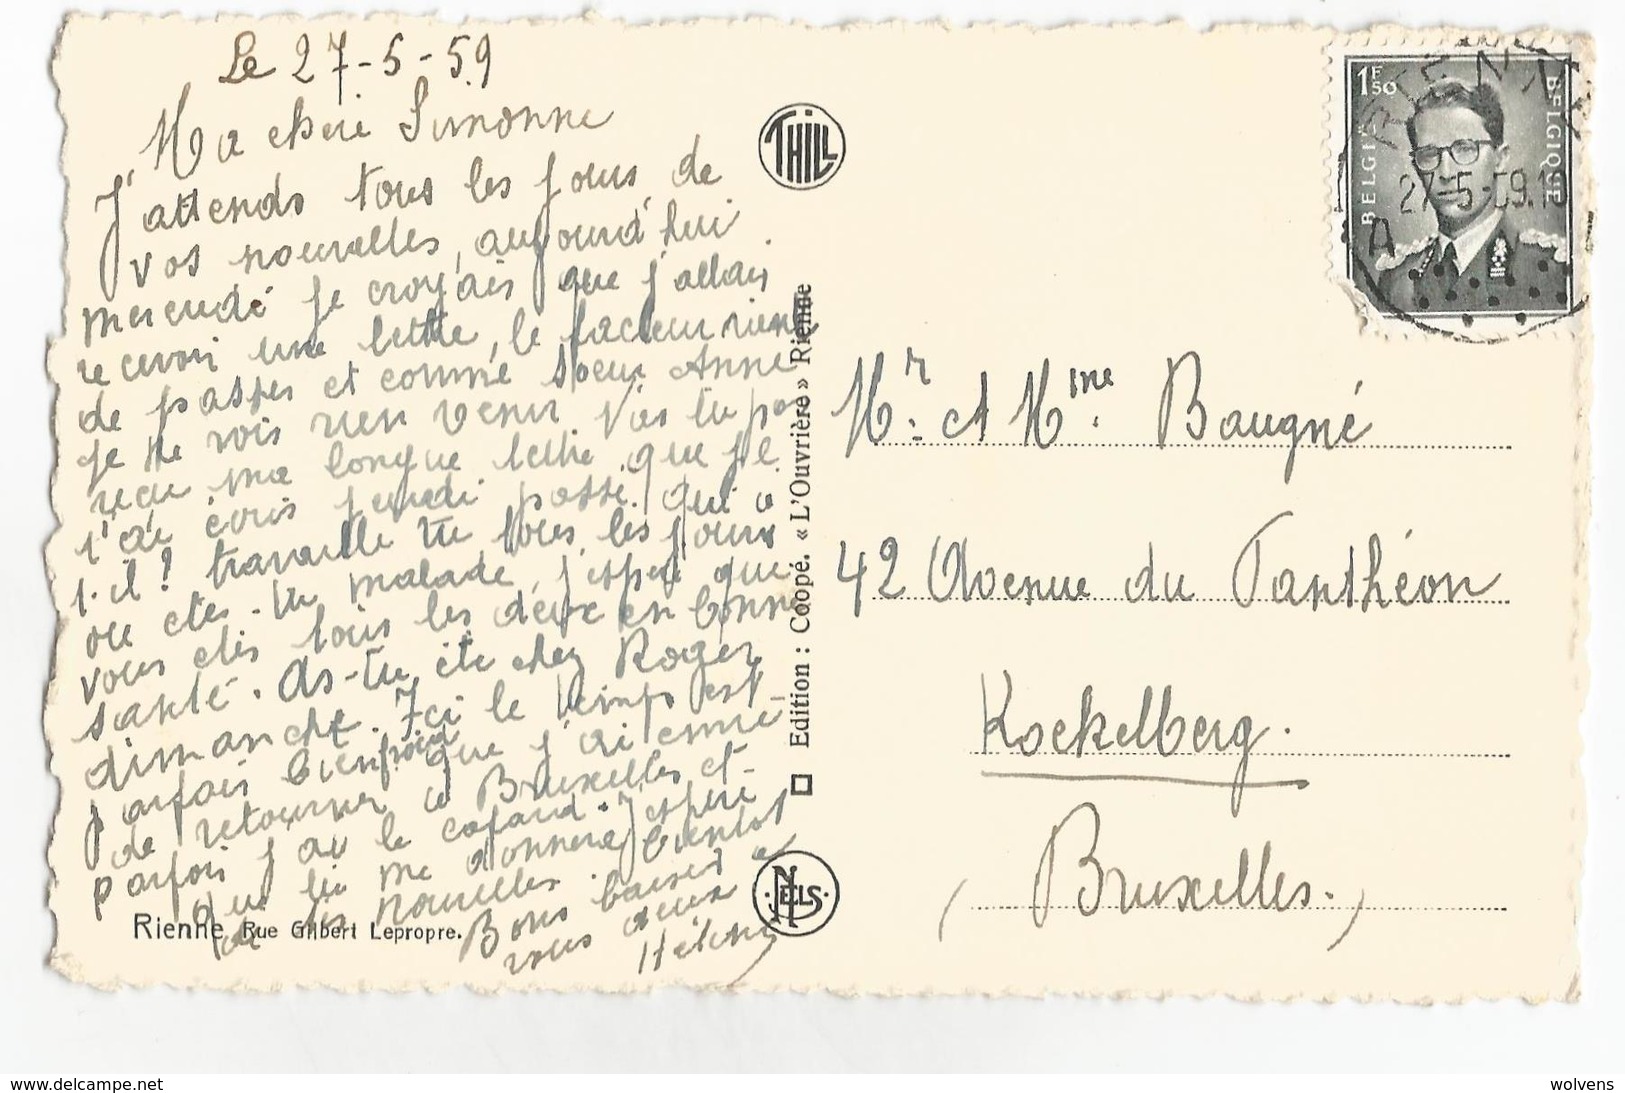 Le 27-5-59
Ma chère Simonne
J'attends tous les jours de
vos nouvelles, aujourd'hui
mercredi je croyais que j'allais
recevoir une lettre, le facteur vient
de passer et comme soeur Anne
je ne vois rien venir. N'as tu pas
recu ma longue lettre que je
t'ai écris jeudi passé. qui a
t-il? travaille tu tous les jours
ou etes-tu malade, j'espere que
vous etes tous les deux en bonne
santé. as-tu été chez Roger
dimanche. Ici le temps est
parfois bien froid que j'ai envie
de retourner a Bruxelles et
parfois j'ai le cafard. J'espere
que tu me donnera bientot
de tes nouvelles. Bons baisers a
vous deux
Hélène
Rienne, Rue Gilbert Lepropre.
THILL
Edition : Coopé. « L'Ouvrière » Rienne
NELS
1F50
BELGIE
BELGIQUE
RIENNE
27-5-59.19
A
Mr. et Mme. Baugné
42 Avenue du Panthéon
Koekelberg.
(Bruxelles.)
www.delcampe.net
wolvens